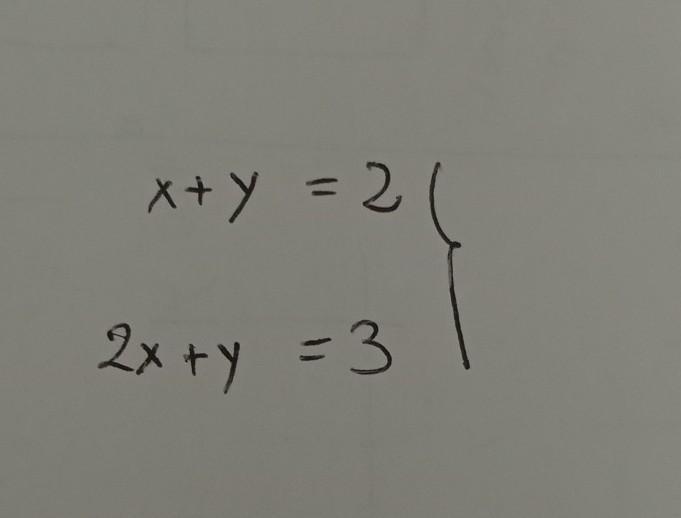 x+y = 2
2x+y = 3